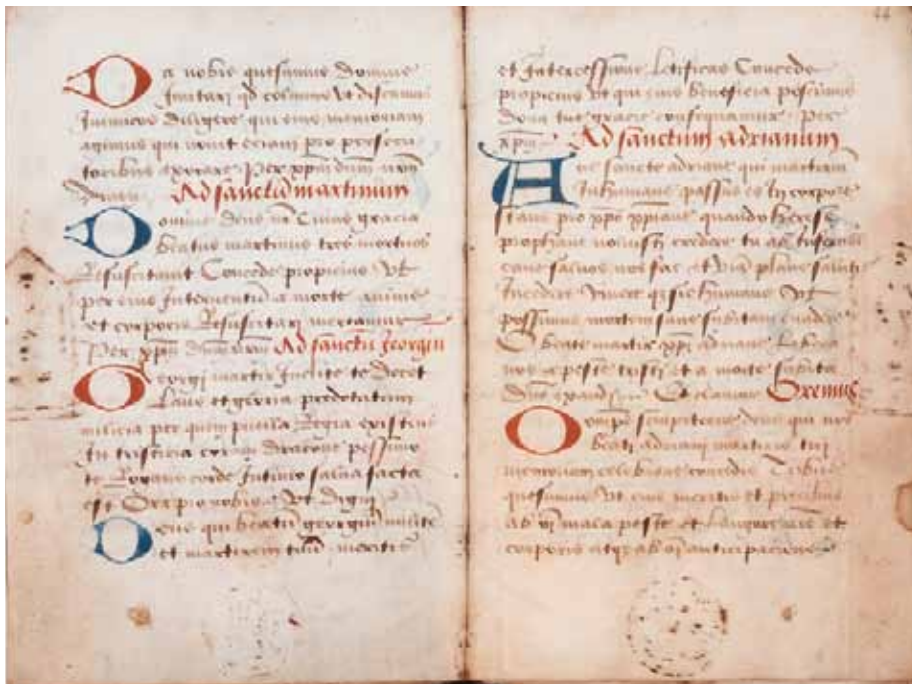 Da nobis quesumus Domine
Imitari qd colimus Vt discamus
Inimicos diligere qui eius memoriam
agimus qui novit eciam pro persecu
toribus exorare Per xpm dnm nrm
Ad sanctu martinum
Domine deus nr Cuius gracia
beatus martinus tres mortuos
Resuscitavit Concede propicius Vt
per eius Interventu a morte anime
et corporis Resuscitari mereamur
Per xpm dnm nrm Ad sanctu georgiu
Georgi martir Inclite te decet
Laus et gloria predotatum
milicia per quem puella Regia existens
In tristicia coram dracone pessimo
te Rogamus corde Intimo salva facta
est Ora pro nobis Vt digni
Deus qui beatu georgiu milite
et martirem tuu meritis
44
et Intercessione Letificas Concede
propicius Vt qui eius beneficia poscimus
dona tue gracie consequamur Per
xpm Ad sanctum adrianum
Ave sancte adriane qui martirium
Inhumane passus es In corpore
pro xpo quando
prophane noluisti credere tu
salvos nos fac et via plane saluti
Incedere Vivere Humane Vt
possimus mortem sane subitam evadere
O beate martir xpi adriane Libera
nos a peste tristi et a morte subita
Oremus
Omps sempiterne deus qui nos
beati adriani martiris tui
memoriam celebrare concedis Tribue
quesumus Vt eius meritis et precibus
ab oi mala peste et Langore et
corporis atqz ab oi